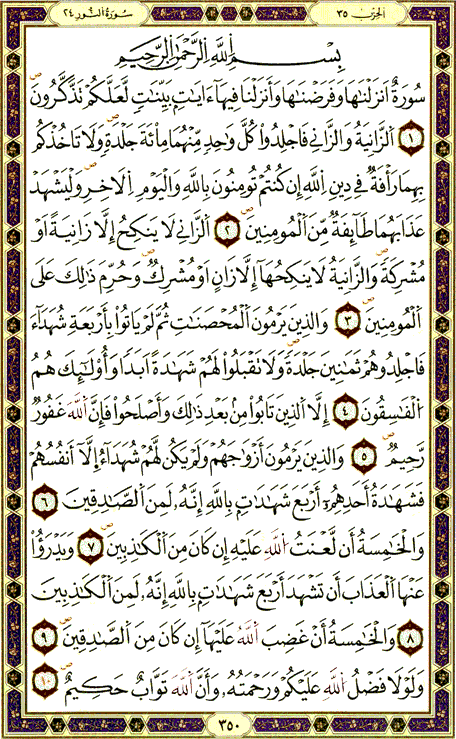 الحزب ٣٥
سورة النور ٢٤
بِسْمِ اِللَّهِ اِلرَّحْمَٰنِ اِلرَّحِيمِ
سُورَةٌ اَنزَلْنَٰهَا وَفَرَضْنَٰهَا وَأَنزَلْنَا فِيهَآ ءَايَٰتِۢ بَيِّنَٰتٍ لَّعَلَّكُمْ تَذَّكَّرُونَ
١ اَلزَّانِيَةُ وَالزَّانِي فَاجْلِدُواْ كُلَّ وَٰحِدٍ مِّنْهُمَا مِاْئَةَ جَلْدَةٍ وَلَا تَاخُذْكُم
بِهِمَا رَأْفَةٌ فِي دِينِ اِللَّهِ إِن كُنتُمْ تُومِنُونَ بِاللَّهِ وَالْيَوْمِ اِلَاخِرِ وَلْيَشْهَدْ
عَذَابَهُمَا طَآئِفَةٌ مِّنَ اَلْمُومِنِينَ ٢ اَلزَّانِي لَا يَنكِحُ إِلَّا زَانِيَةً اَوْ
مُشْرِكَةً وَالزَّانِيَةُ لَا يَنكِحُهَآ إِلَّا زَانٍ اَوْ مُشْرِكٌ وَحُرِّمَ ذَٰلِكَ عَلَى
اَلْمُومِنِينَ ٣ وَالذِينَ يَرْمُونَ اَلْمُحْصَنَٰتِ ثُمَّ لَمْ يَاتُواْ بِأَرْبَعَةِ شُهَدَآءَ
فَاجْلِدُوهُمْ ثَمَٰنِينَ جَلْدَةً وَلَا تَقْبَلُواْ لَهُمْ شَهَٰدَةً اَبَدًا وَأُوْلَٰٓئِكَ هُمُ
اُلْفَٰسِقُونَ ٤ إِلَّا اَلذِينَ تَابُواْ مِنۢ بَعْدِ ذَٰلِكَ وَأَصْلَحُواْ فَإِنَّ اَللَّهَ غَفُورٌ
رَّحِيمٌ ٥ وَالذِينَ يَرْمُونَ أَزْوَٰجَهُمْ وَلَمْ يَكُن لَّهُمْ شُهَدَآءُ اِلَّآ أَنفُسُهُمْ
فَشَهَٰدَةُ أَحَدِهِمُۥٓ أَرْبَعَ شَهَٰدَٰتِۢ بِاللَّهِ إِنَّهُۥ لَمِنَ اَلصَّٰدِقِينَ ٦
وَالْخَٰمِسَةُ أَن لَّعْنَتُ اُللَّهِ عَلَيْهِ إِن كَانَ مِنَ اَلْكَٰذِبِينَ ٧ وَيَدْرَؤُاْ
عَنْهَا اَلْعَذَابَ أَن تَشْهَدَ أَرْبَعَ شَهَٰدَٰتِۢ بِاللَّهِ إِنَّهُۥ لَمِنَ اَلْكَٰذِبِينَ
٨ وَالْخَٰمِسَةُ أَنْ غَضِبَ اَللَّهُ عَلَيْهَآ إِن كَانَ مِنَ اَلصَّٰدِقِينَ ٩
وَلَوْلَا فَضْلُ اُللَّهِ عَلَيْكُمْ وَرَحْمَتُهُۥ وَأَنَّ اَللَّهَ تَوَّابٌ حَكِيمٌ ١٠
٣٥٠